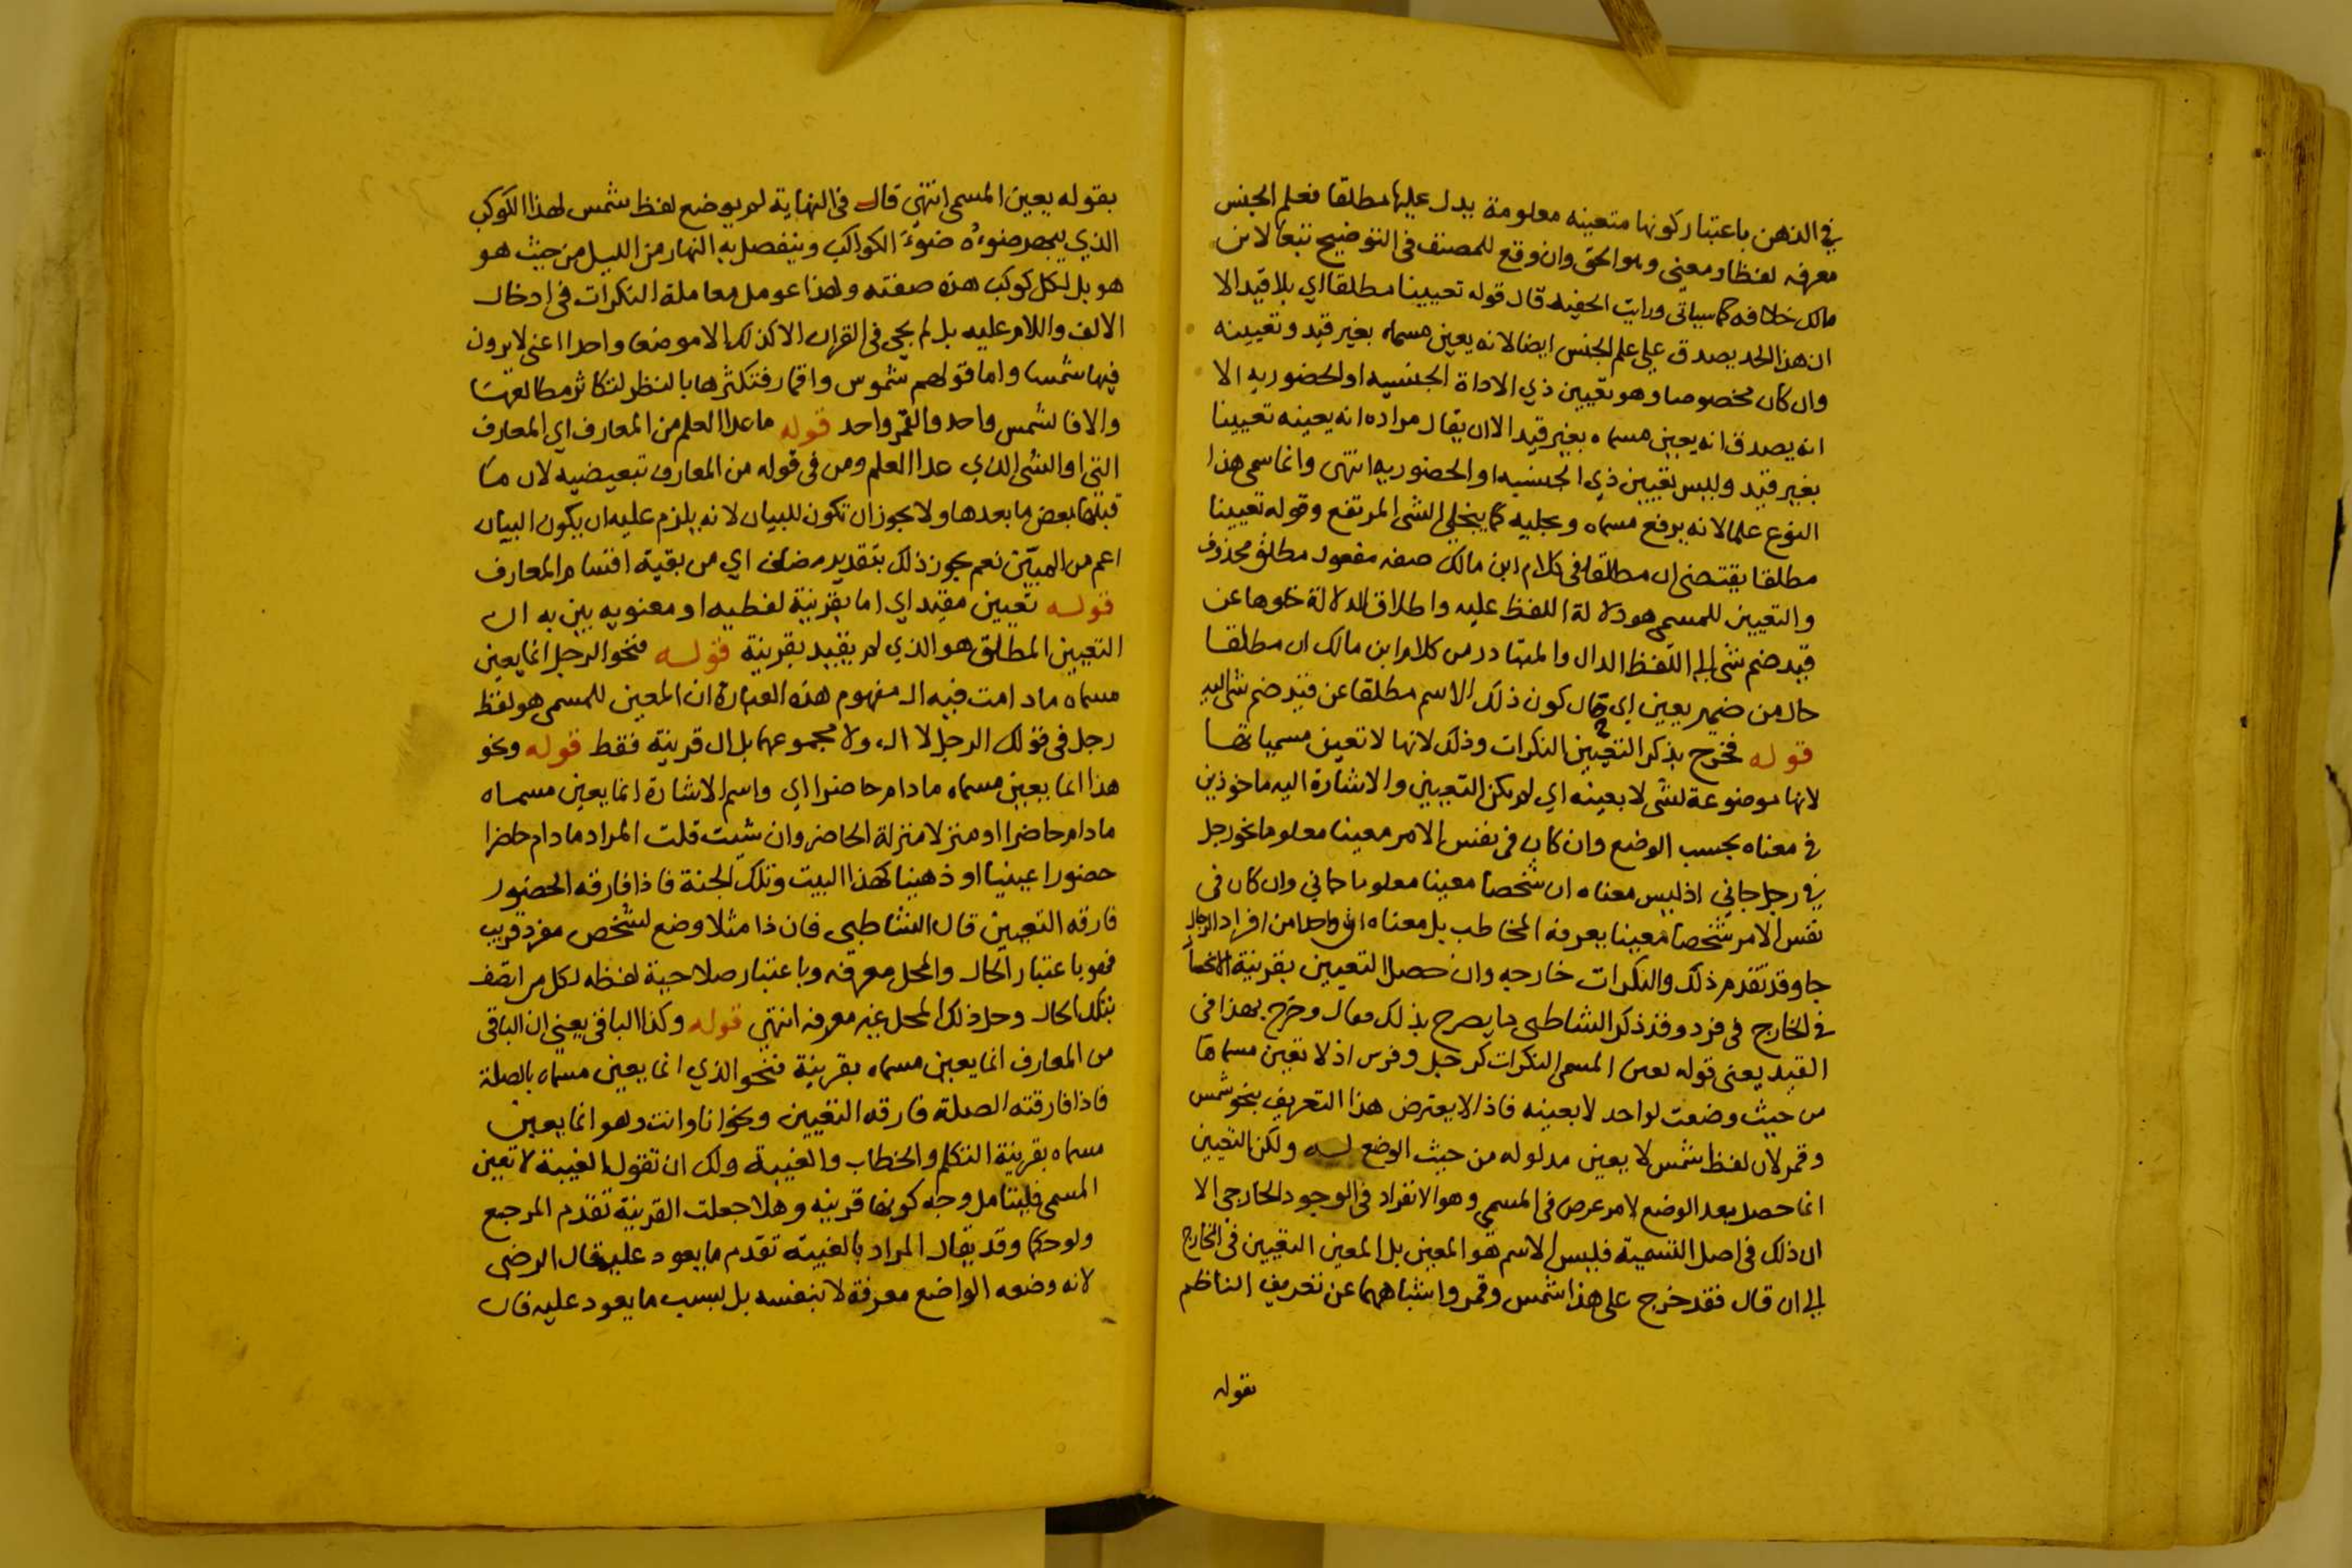 في الذهن باعتبار كونها متعينه معلومة يدل عليها مطلقا فعلم الجنس
معرفه لفظا ومعنى وهو الحق وان وقع للمصنف في التوضيح تبعا لابن
مالك خلافه كما سياتي ورايت الحفيد قال قوله تعيينا مطلقا اي بلا قيد الا
ان هذا الحد يصدق على علم الجنس ايضا لانه يعين مسماه بغير قيد وتعيينه
وان كان مخصوصا وهو تعيين ذي الاداة الجنسيه او الحضوريه الا
انه يصدق انه يعين مسماه بغير قيد الا ان يقال مراده انه يعينه تعيينا
بغير قيد وليس تعيين ذي الجنسيه او الحضوريه انتهى وانما سمي هذا
النوع علما لانه يرفع مسماه ويجليه كما ينجلي الشي المرتفع وقوله تعيينا
مطلقا يقتضي ان مطلقا في كلام ابن مالك صفه مفعول مطلق محذوف
والتعيين للمسمى هو دلالة اللفظ عليه واطلاق الدلالة خلوها عن
قيد ضم شي الى اللفظ الدال والمتبادر من كلام ابن مالك ان مطلقا
حال من ضمير يعين اي حال كون ذلك الاسم مطلقا عن قيد ضم شي اليه
قوله فخرج بذكر التعيين النكرات وذلك لانها لا تعين مسمياتها
لانها موضوعة لشي لا بعينه اي لم يكن التعيين والاشارة اليه ماخوذين
في معناه بحسب الوضع وان كان في نفس الامر معينا معلوما نحو رجل
في رجل جاني اذ ليس معناه ان شخصا معينا معلوما جاني وان كان في
نفس الامر شخصا معينا يعرفه المخاطب بل معناه ان واحدا من افراد الرجال
جا وقد تقدم ذلك والنكرات خارجه وان حصل التعيين بقرينة الانحصار
في الخارج في فرد وقد ذكر الشاطبي ما يصرح بذلك فقال وخرج بهذا في
القيد يعني قوله يعين المسمى النكرات كرجل وفرس اذ لا تعين مسماها
من حيث وضعت لواحد لا بعينه فاذا لا يعترض هذا التعريف بنحو شمس
وقمر لان لفظ شمس لا يعين مدلوله من حيث الوضع له ولكن التعيين
انما حصل بعد الوضع لامر عرض في المسمى وهو الانفراد في الوجود الخارجي الا
ان ذلك في اصل التسمية فليس الاسم هو المعين بل المعين التعيين في الخارج
الى ان قال فقد خرج على هذا شمس وقمر واشباههما عن تعريف الناظم
بقوله
بقوله يعين المسمى انتهى قال في النهاية لم يوضع لفظ شمس لهذا الكوكب
الذي يبهر ضوءه ضوء الكواكب وينفصل به النهار من الليل من حيث هو
هو بل لكل كوكب هذه صفته ولهذا عومل معاملة النكرات في ادخال
الالف واللام عليه بل لم يجي في القران الا كذلك الا موضعا واحدا اعني لا يرون
فيها شمسا واما قولهم شموس واقمار فتكثرها بالنظر لتكاثر مطالعهما
والا فالشمس واحد والقمر واحد قوله ما عدا العلم من المعارف اي المعارف
التي او الشي الذي عدا العلم ومن في قوله من المعارف تبعيضيه لان ما
قبلها بعض ما بعدها ولا يجوز ان تكون للبيان لانه يلزم عليه ان يكون البيان
اعم من المبين نعم يجوز ذلك بتقدير مضاف اي من بقية اقسام المعارف
قوله تعيين مقيد اي اما بقرينة لفظيه او معنويه بين به ان
التعيين المطلق هو الذي لم يقيد بقرينة قوله فنحو الرجل انما يعين
مسماه ما دامت فيه ال مفهوم هذه العبارة ان المعين للمسمى هو لفظ
رجل في قولك الرجل لا ال ولا مجموعهما بل ال قرينة فقط قوله ونحو
هذا انما يعين مسماه ما دام حاضرا اي واسم الاشارة انما يعين مسماه
ما دام حاضرا او منزلا منزلة الحاضر وان شيت قلت المراد ما دام حاضرا
حضورا عينيا او ذهنيا كهذا البيت وتلك الجنة فاذا فارقه الحضور
فارقه التعيين قال الشاطبي فان ذا مثلا وضع لشخص مفرد قريب
فهو باعتبار الحال والمحل معرفه وباعتبار صلاحية لفظه لكل من اتصف
بتلك الحال وحل ذلك المحل غير معرفه انتهى قوله وكذا الباقي يعني ان الباقي
من المعارف انما يعين مسماه بقرينة فنحو الذي انما يعين مسماه بالصلة
فاذا فارقته الصلة فارقه التعيين ونحو انا وانت وهو انما يعين
مسماه بقرينة التكلم والخطاب والغيبة ولك ان تقول الغيبة لا تعين
المسمى فليتامل وجه كونها قرينه وهلا جعلت القرينة تقدم المرجع
ولو حكما وقد يقال المراد بالغيبة تقدم ما يعود عليه قال الرضي
لانه وضعه الواضع معرفة لا بنفسه بل بسبب ما يعود عليه فان